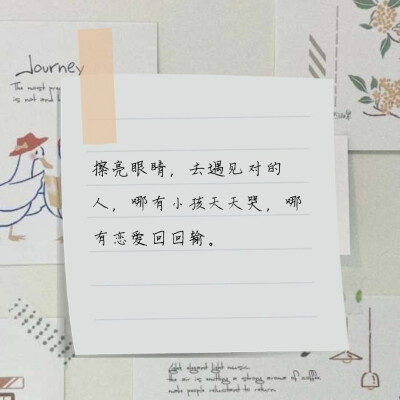 Journey
is not
擦亮眼睛，去遇见对的
人，哪有小孩天天哭，哪
有恋爱回回输。
light elegant light music.
the air is emitting a strong aroma of coffee
make people reluctant to return